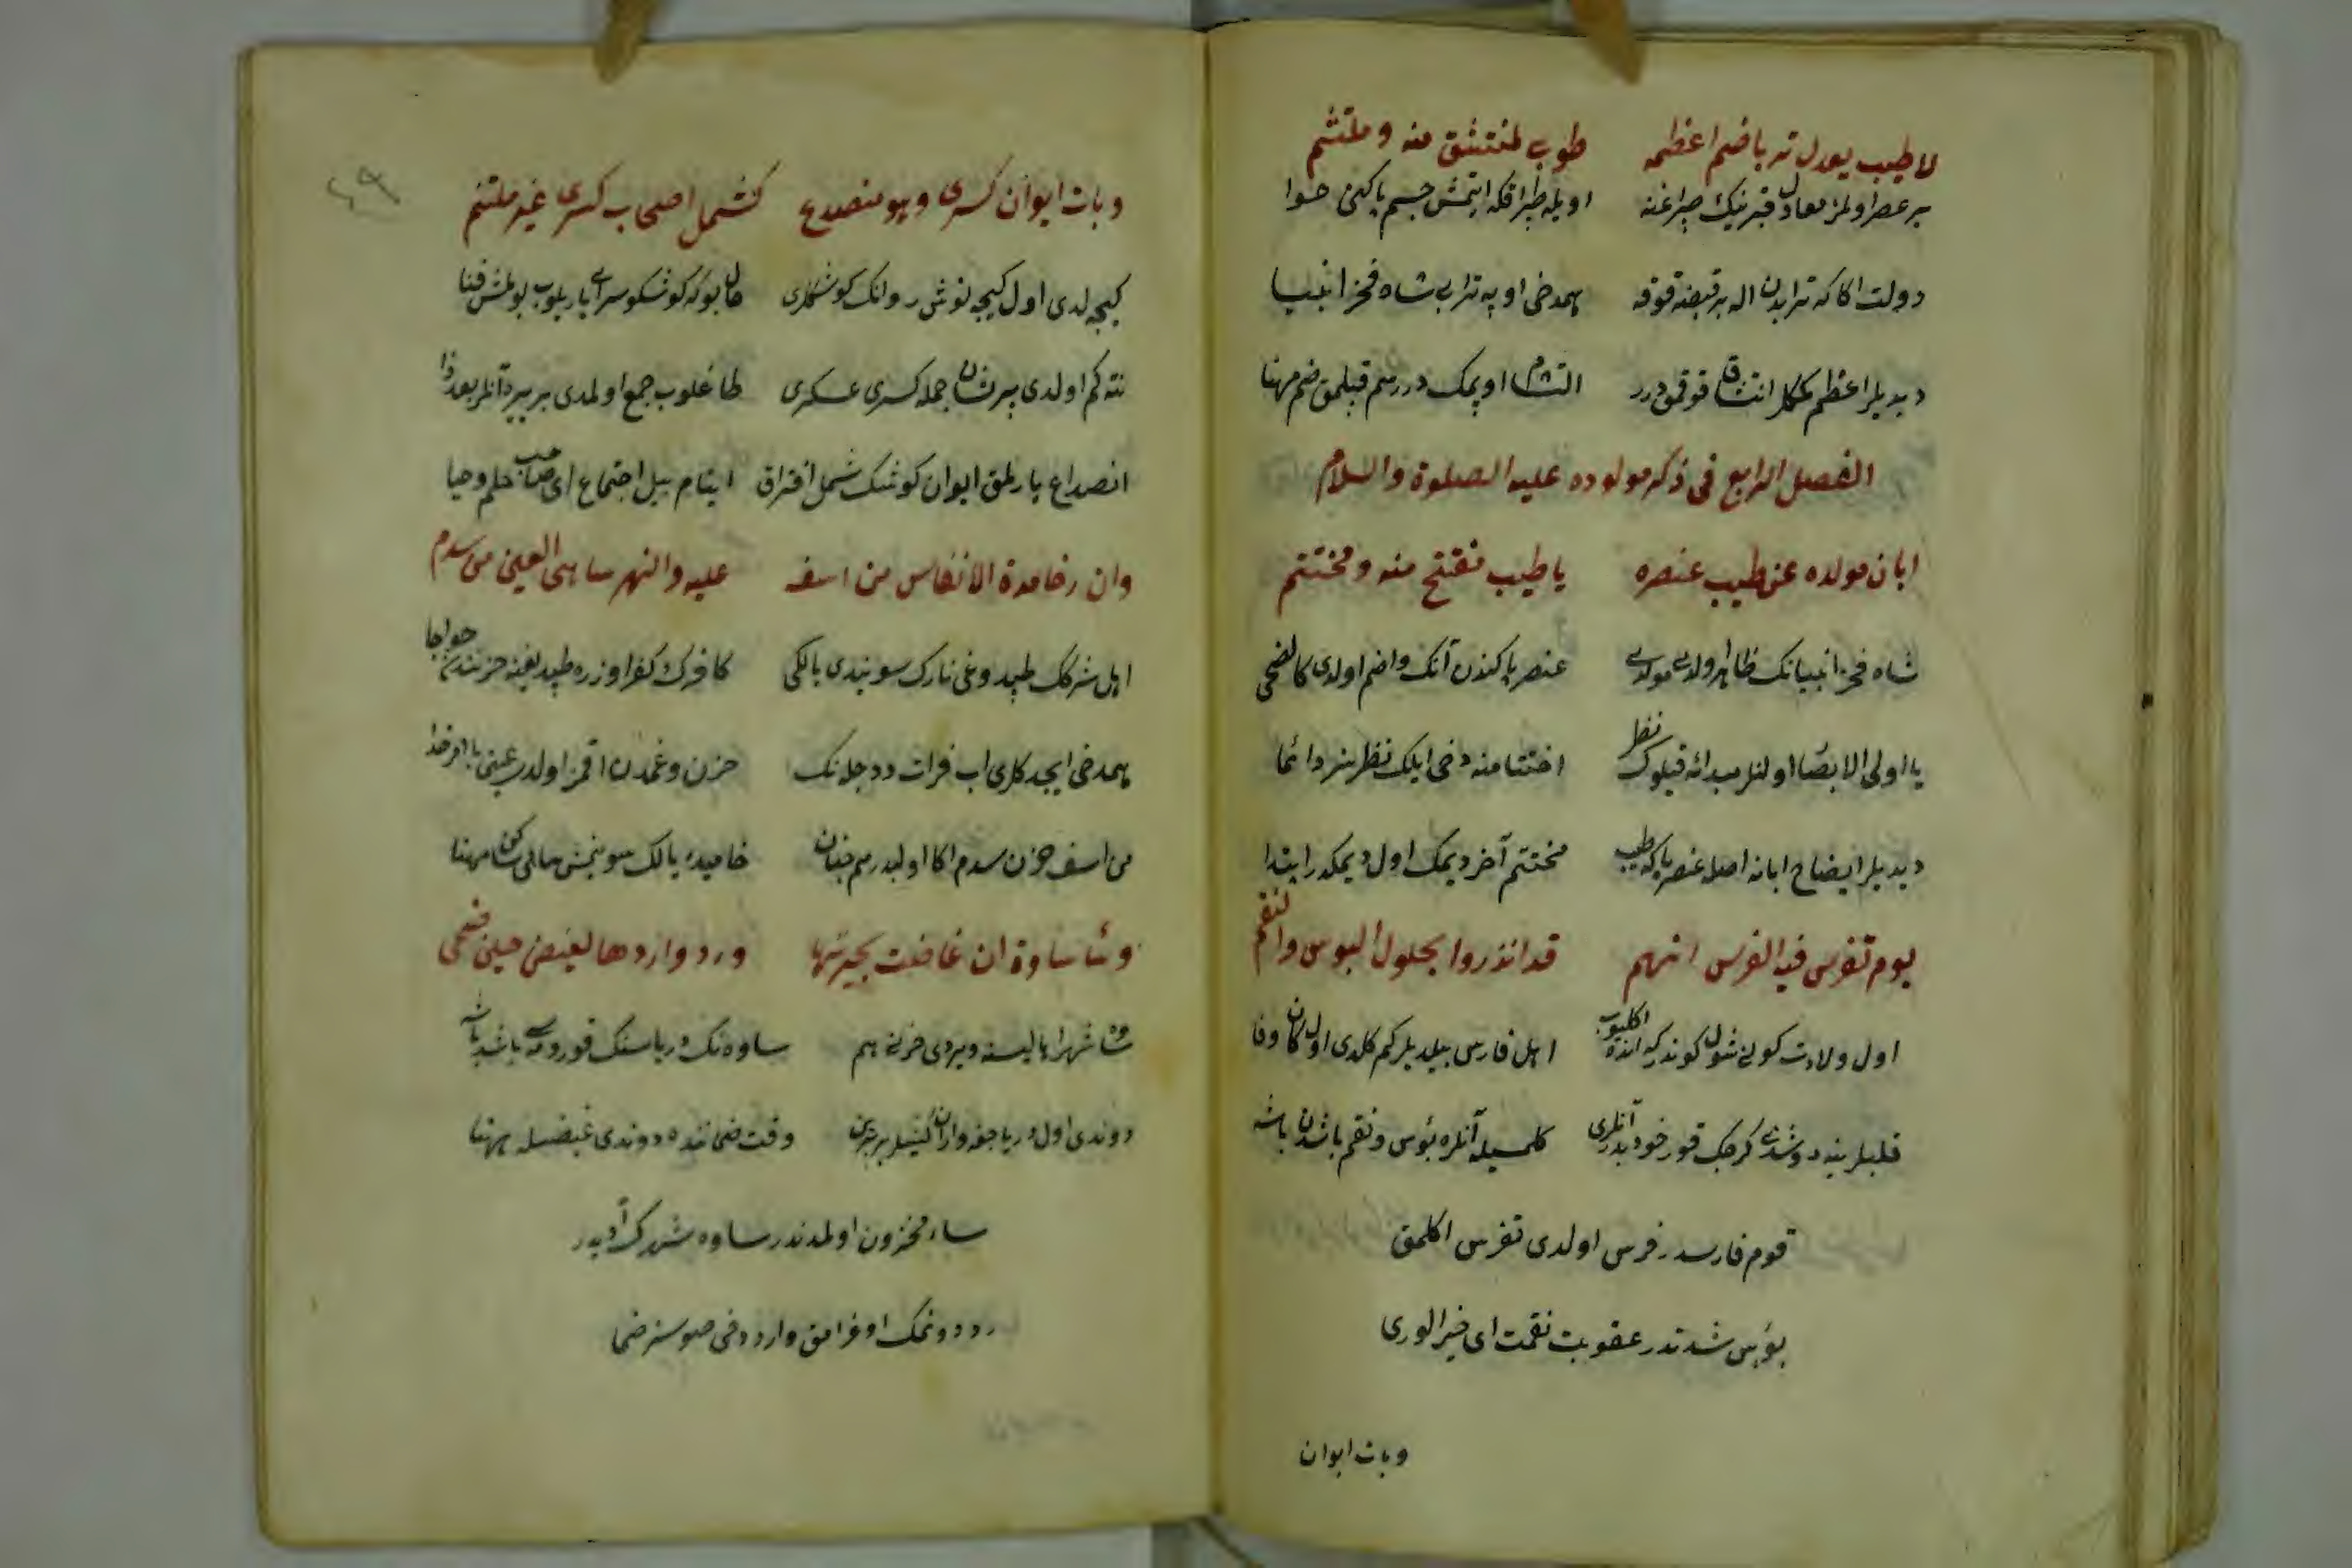 لا طيب يعدل تربا ضم اعظمه طوبى لمنتشق منه وملتثم
بر عطر اولمز معادل قبرينك عطرينه اويله طپراقكه ايتمش جسم پاكنى حوا
دولت اكا كه ترابدن اله بر قبضه قوقه همدخى اوپه ترابى شاه فخر انبيا
ديديلر اعظم كمكلر انتشاق قوقمق درر التثام اوپمك درر سم قيلمق ضم مهنا
الفصل الرابع فى ذكر مولوده عليه الصلوة والسلام
ابان مولده عن طيب عنصره يا طيب مفتتح منه ومختتم
شاه فخر انبيانك ظاهر اولدى مولدى عنصر پاكندن آنك واضح اولدى كالضحى
يا اولى الابصار اولنلر مبدائه قيلوك نظر اختتامنه دخى ايلك نظر سز دائما
ديديلر ايضاح ابانه اصله عنصر پاكه طيب مختتم آخر ديمك اول ديمكدر ابتدا
يوم تفرس فيه الفرس انهم قد انذروا بحلول البوس والنقم
اول ولادت كونى شول كوندر كه انده اكليوب اهل فارس بيلديلر كم كلدى اول كان وفا
قلبلرينه دوشدى كرچك قورخودر آنلرى كلمسيله آنلره بؤس ونقم باشدن باشه
قوم فارسدر فرس اولدى تفرس اكلمق
بؤس شدتدر عقوبت نقمت اى خير الورى
وبات ايوان
وبات ايوان كسرى وهو منصدع كشمل اصحاب كسرى غير ملتئم
كيجه لدى اول كيجه نوشروانك كوشكلرى حال بوكه كوشكو سراى ياريلوب بولمش فنا
نته كم اولدى پريشان جمله كسرى عسكرى طاغلوب جمع اولمدى بر يرده آنلر بعدذا
انصداع يارلمق ايوان كوشك شمل افتراق ايتام بيل اجتماع اى صاحب حلم وحيا
والنار خامدة الانفاس من اسف عليه والنهر ساهى العين من سدم
اهل شركك طپدوغى نارك سويندى يالكى كافرك كفر اوزره طپديغنه حزنندن
همدخى ايچدكلرى اب فرات ودجله نك حزن وغمدن اقمز اولدى عينى با امر خدا
من اسف حزن سدم اكا اولدر هم خامده يالك سوينمش ساهى ساكن مهنا
وساء ساوة ان غاضت بحيرتها ورد واردها بالغيض حين ظمى
ساوه شهرى اهاليسنه ويردى حزن هم ساوه نك درياسنك قورومسى باشدن باشه
دوندى اول دريا وقت ضمانده دوندى غيضله مهنا
ساء محزون اولمدندر ساوه شهرك آديدر
رد دوندمك اوغرامق وارددخى صوسز ضما